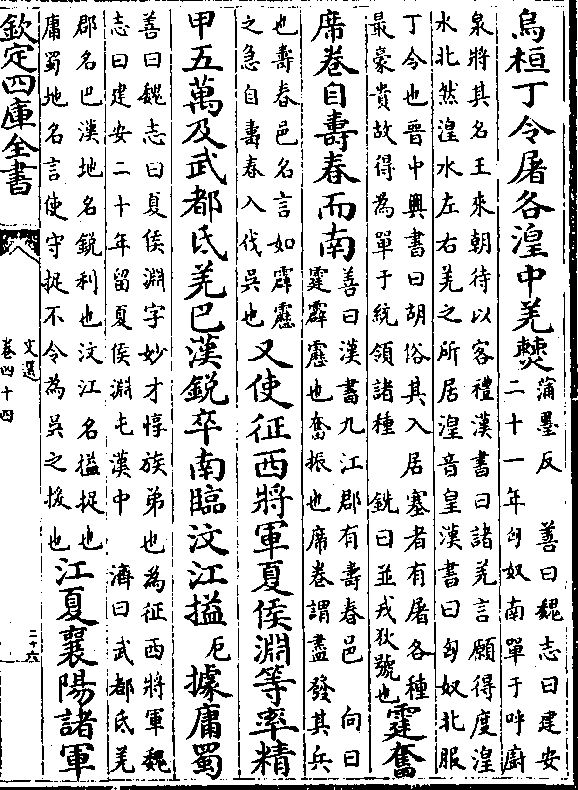 烏桓丁令屠各湟中羌僰
蒲墨反　善曰魏志曰建安
二十一年匈奴南單于呼廚
泉將其名王來朝待以客禮漢書曰諸羌言願得度湟
水北然湟水左右羌之所居湟音皇漢書曰匈奴北服
丁令也晉中興書曰胡俗其入居塞者有屠各種
最豪貴故得為單于統領諸種　銑曰並戎狄號也
霆奮
席卷自壽春而南
善曰漢書九江郡有壽春邑　向曰
霆霹靂也奮振也席卷謂盡發其兵
也壽春邑名言如霹靂
之急自壽春入伐吳也
又使征西將軍夏侯淵等率精
甲五萬及武都氐羌巴漢鋭卒南臨汶江搤
厄
據庸蜀
善曰魏志曰夏侯淵字妙才惇族弟也為征西將軍魏
志曰建安二十年留夏侯淵屯漢中　濟曰武都氐羌
郡名巴漢地名鋭利也汶江名搤捉也
庸蜀地名言使守捉不令為吳之援也
江夏襄陽諸軍
欽定四庫全書
文選
卷四十四
二十六